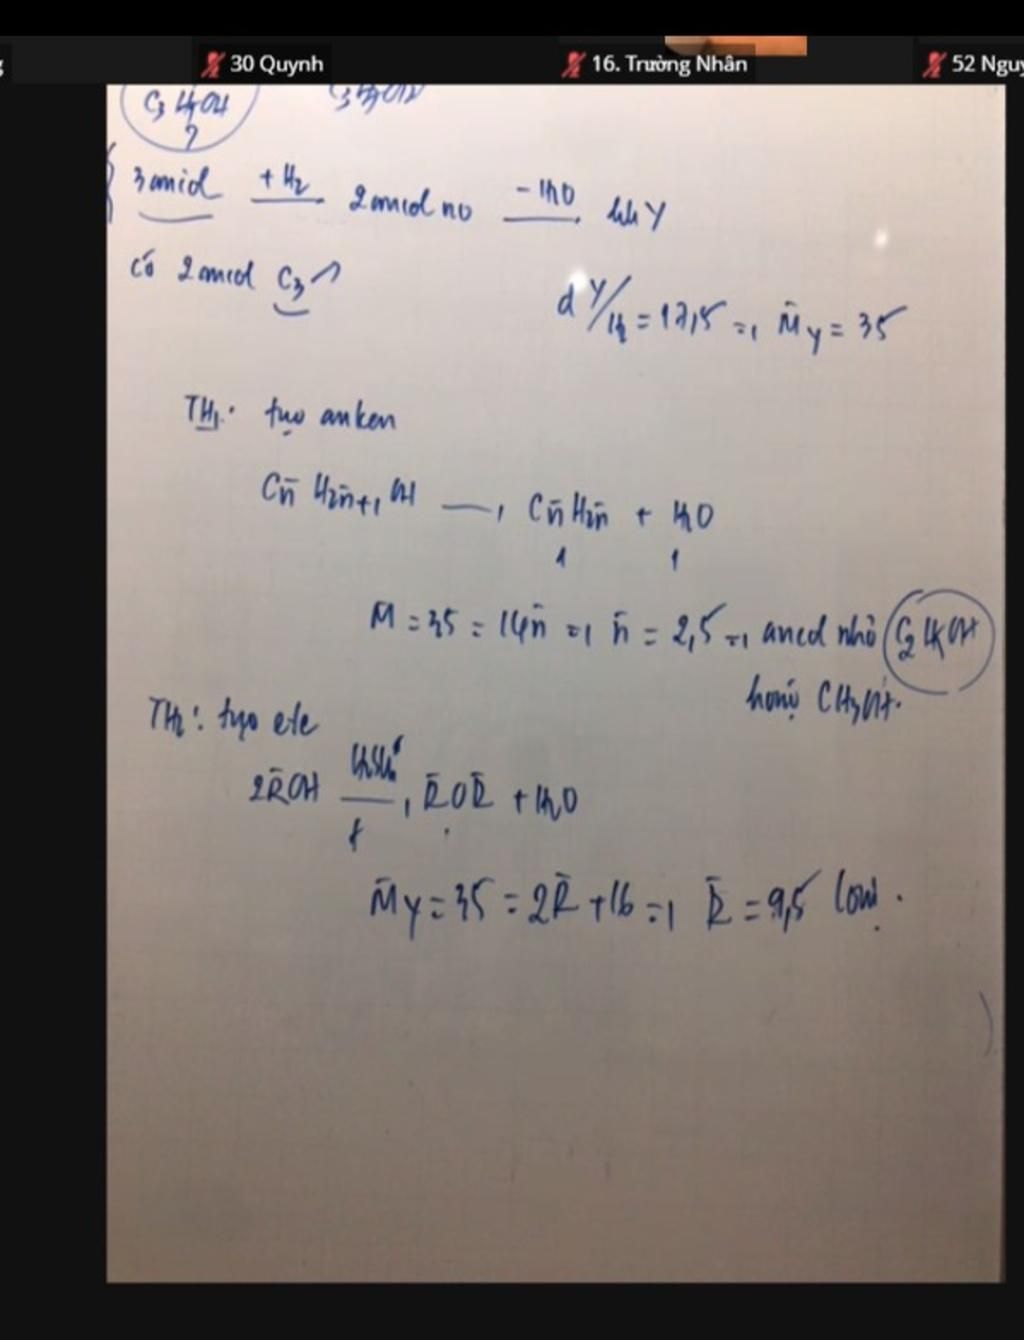 30 Quynh
16. Trường Nhân
52 Nguy
C3H7OH
?
3 ancol +H2 2 ancol no -H2O hh Y
có 2 ancol C3
d Y/H2 = 17,5 => M̄Y = 35
TH1: tạo anken
Cn̄H2n̄+1OH → Cn̄H2n̄ + H2O
1 1
M̄ = 35 = 14n̄ => n̄ = 2,5 => ancol nhỏ C2H5OH
hoặc CH3OH.
TH2: tạo ete
2R̄OH H2SO4 → R̄OR̄ + H2O
M̄Y = 35 = 2R̄ + 16 => R̄ = 9,5 loại.